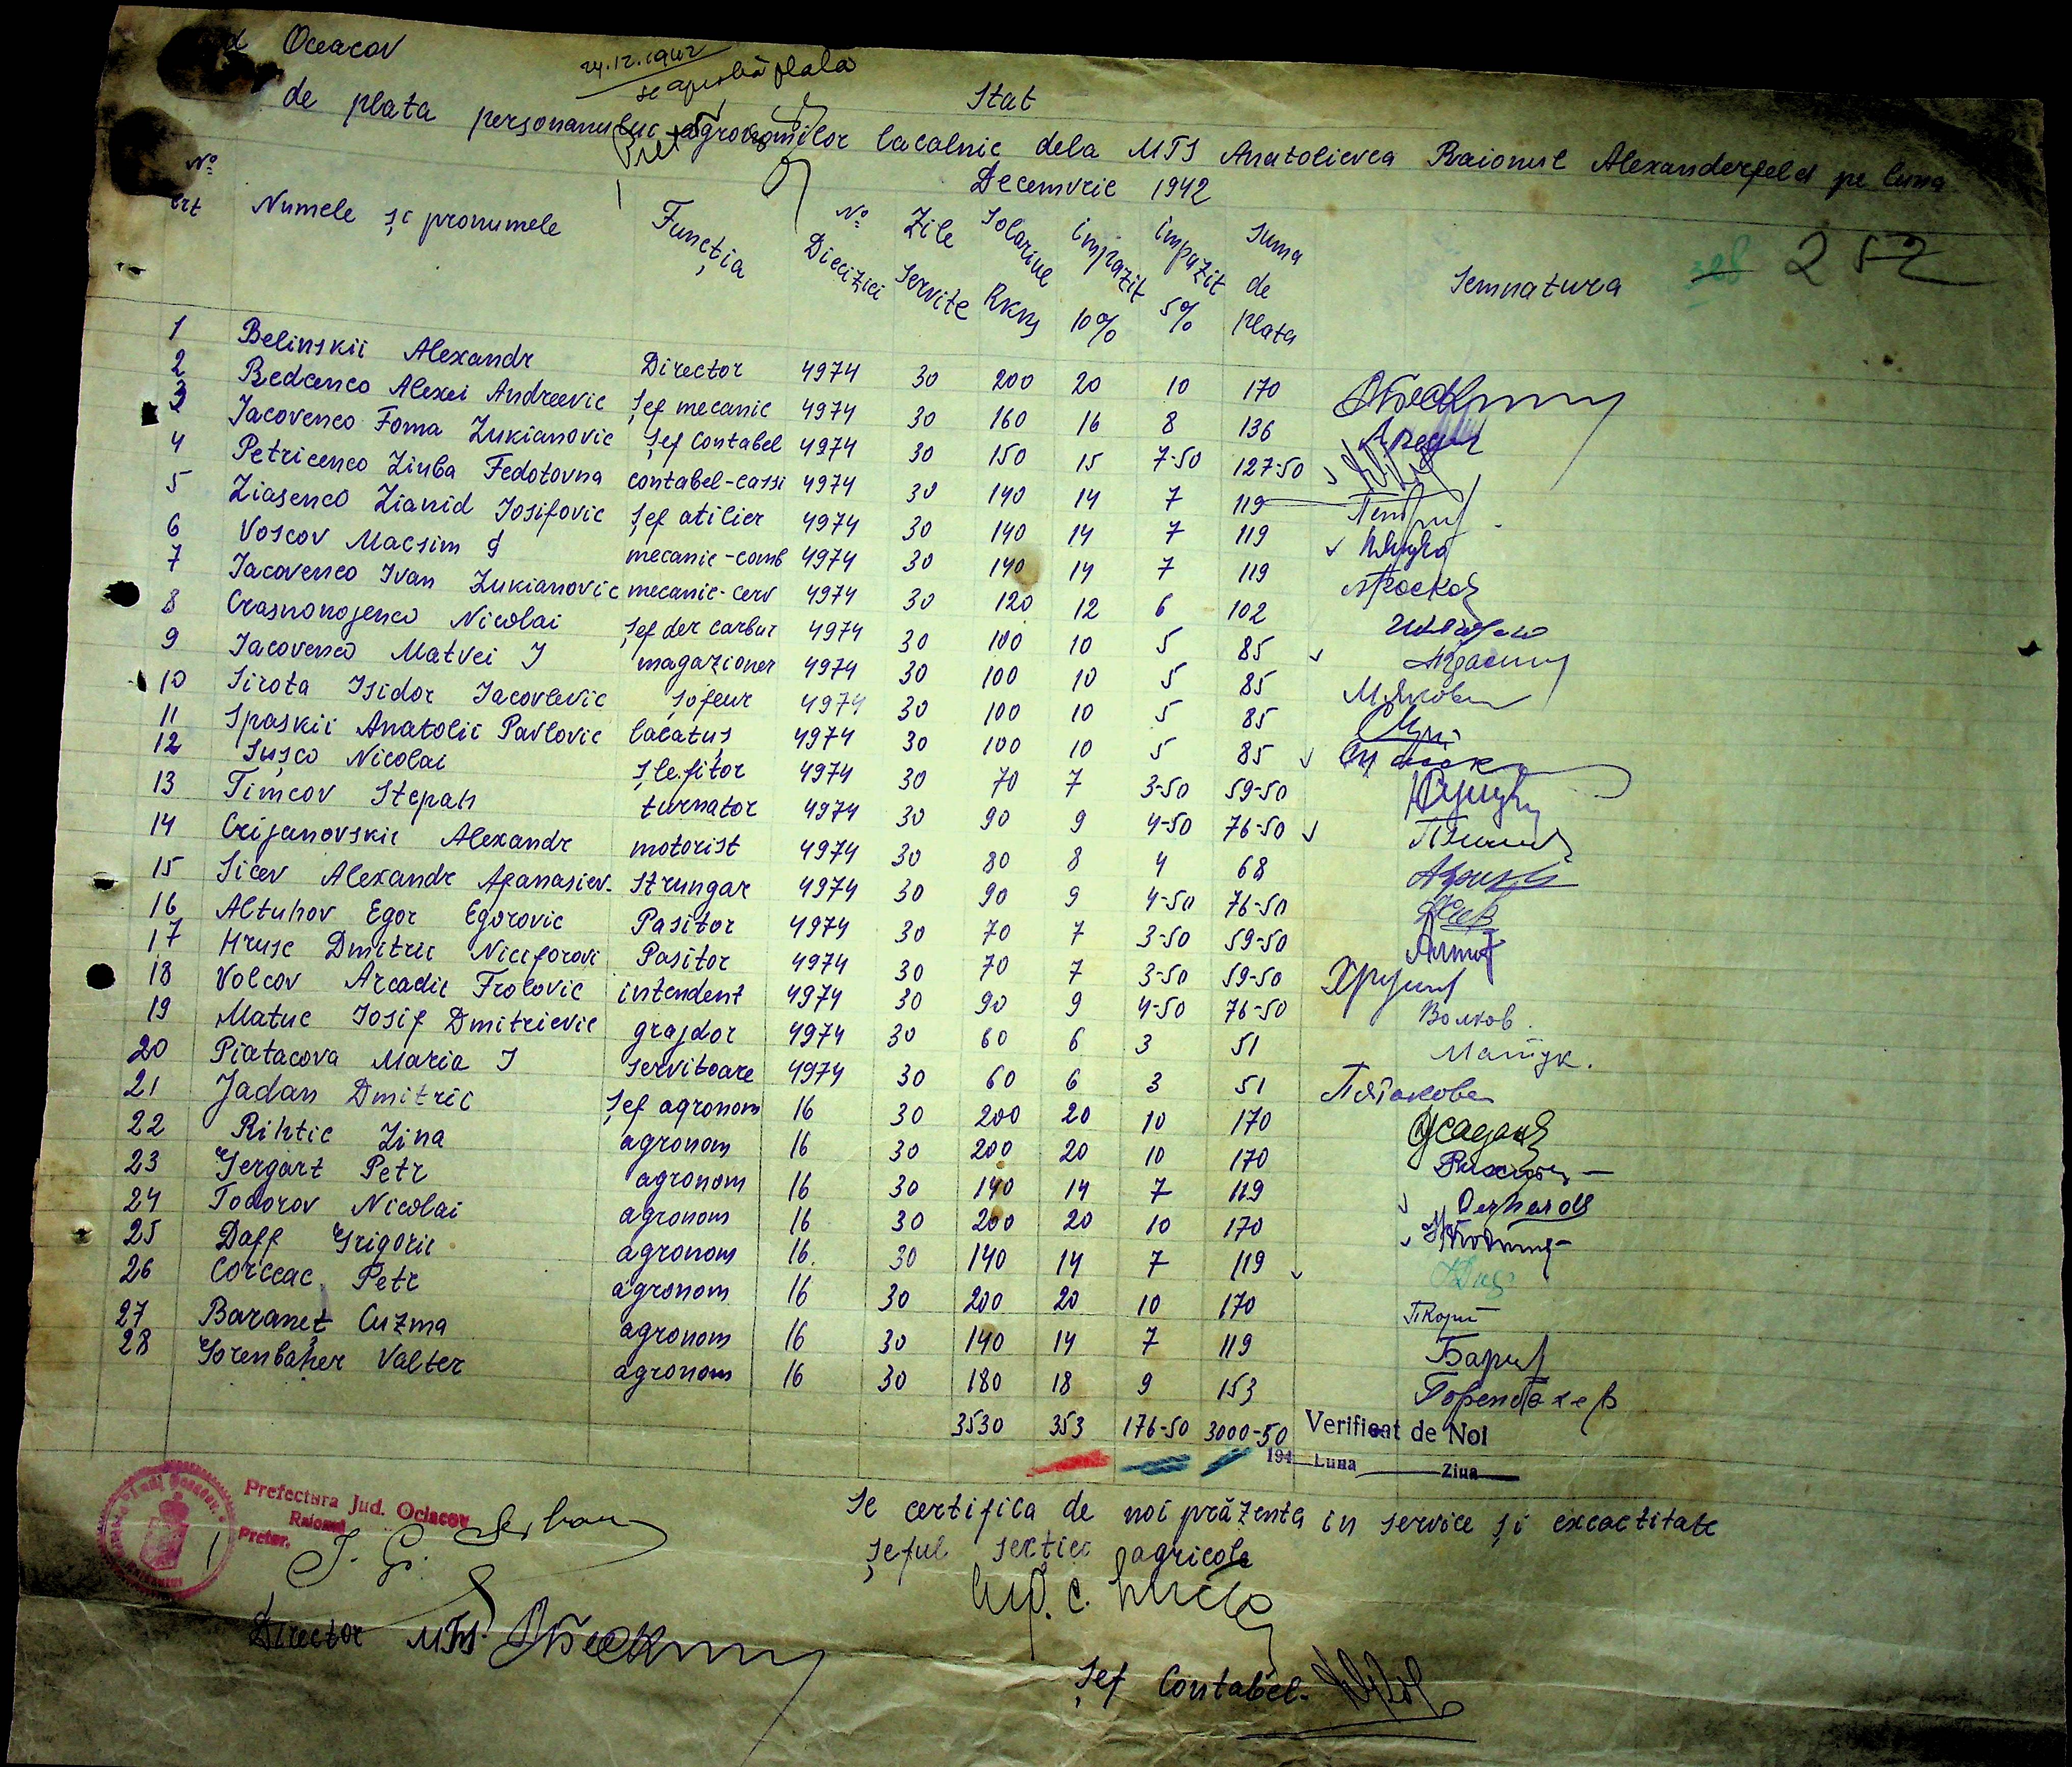 Oceacov
24.12.1942
se aprobă plata
Stat
de plata personanului agronomilor lacalnic dela MTS Anatolievca Raionul Alexanderfeld pe luna
Decemvrie 1942
No crt Numele și pronumele Funcția No Diecizici Zile Servite Solariue RKMS impazit 10% impazit 5% Suma de plata Semnatura 252
1 Belinskii Alexandr Director 4974 30 200 20 10 170
2 Bedcenco Alexei Andreevic Șef mecanic 4974 30 160 16 8 136
3 Iacovenco Foma Lukianovic Șef Contabel 4974 30 150 15 7-50 127-50
4 Petricenco Liuba Fedotovna contabel-cassi 4974 30 140 14 7 119
5 Liasenco Lianid Iosifovic Șef atilier 4974 30 140 14 7 119
6 Voscov Macsim mecanic-comb 4974 30 140 14 7 119
7 Iacovenco Ivan Lukianovic mecanic-cerv 4974 30 120 12 6 102
8 Crasnonojenco Nicolai Șef der carbur 4974 30 100 10 5 85
9 Iacovenco Matvei I magazioner 4974 30 100 10 5 85
10 Sirota Isidor Iacovlevic Șofeur 4974 30 100 10 5 85
11 Spaskii Anatolii Pavlovic lacatuș 4974 30 100 10 5 85
12 Sușco Nicolai Șlefițor 4974 30 70 7 3-50 59-50
13 Timcov Stepan turnator 4974 30 90 9 4-50 76-50
14 Crijanovskii Alexandr motorist 4974 30 80 8 4 68
15 Sicev Alexandr Afanasiev. Strungar 4974 30 90 9 4-50 76-50
16 Altuhov Egor Egorovic Pasitor 4974 30 70 7 3-50 59-50
17 Hrusc Dmitrii Niciforovi Pasitor 4974 30 70 7 3-50 59-50
18 Volcov Arcadii Frolovic intendent 4974 30 90 9 4-50 76-50 Волков
19 Matuc Iosif Dmitrievic grajdor 4974 30 60 6 3 51 Матук.
20 Piatacova Maria I servitoare 4974 30 60 6 3 51 Пятакова
21 Jadan Dmitrii Șef agronom 16 30 200 20 10 170
22 Rihtic Lina agronom 16 30 200 20 10 170
23 Gergart Petr agronom 16 30 140 14 7 119
24 Todorov Nicolai agronom 16 30 200 20 10 170
25 Daff Grigorii agronom 16. 30 140 14 7 119
26 Corceac Petr agronom 16 30 200 20 10 170
27 Baraneț Cuzma agronom 16 30 140 14 7 119
28 Gorenbaher Valter agronom 16 30 180 18 9 153
3530 353 176-50 3000-50
Verificat de Noi
194 Luna Ziua
Prefectura Jud. Ociacov
Raionul
Pretor,
Se certifica de noi prăzenta in service și excactitate
Șeful sectiei agricole
Director MTS
Șef Contabel.